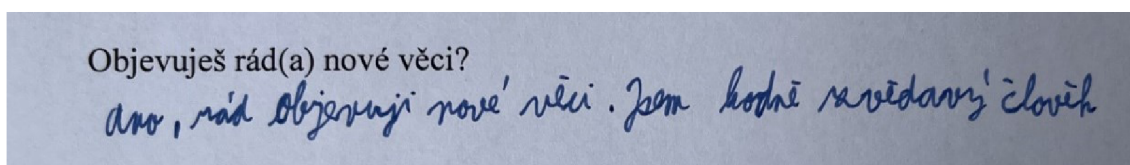 Objevuješ rád(a) nové věci?
ano, rád objevuji nové věci. Jsem hodně zvědavý člověk